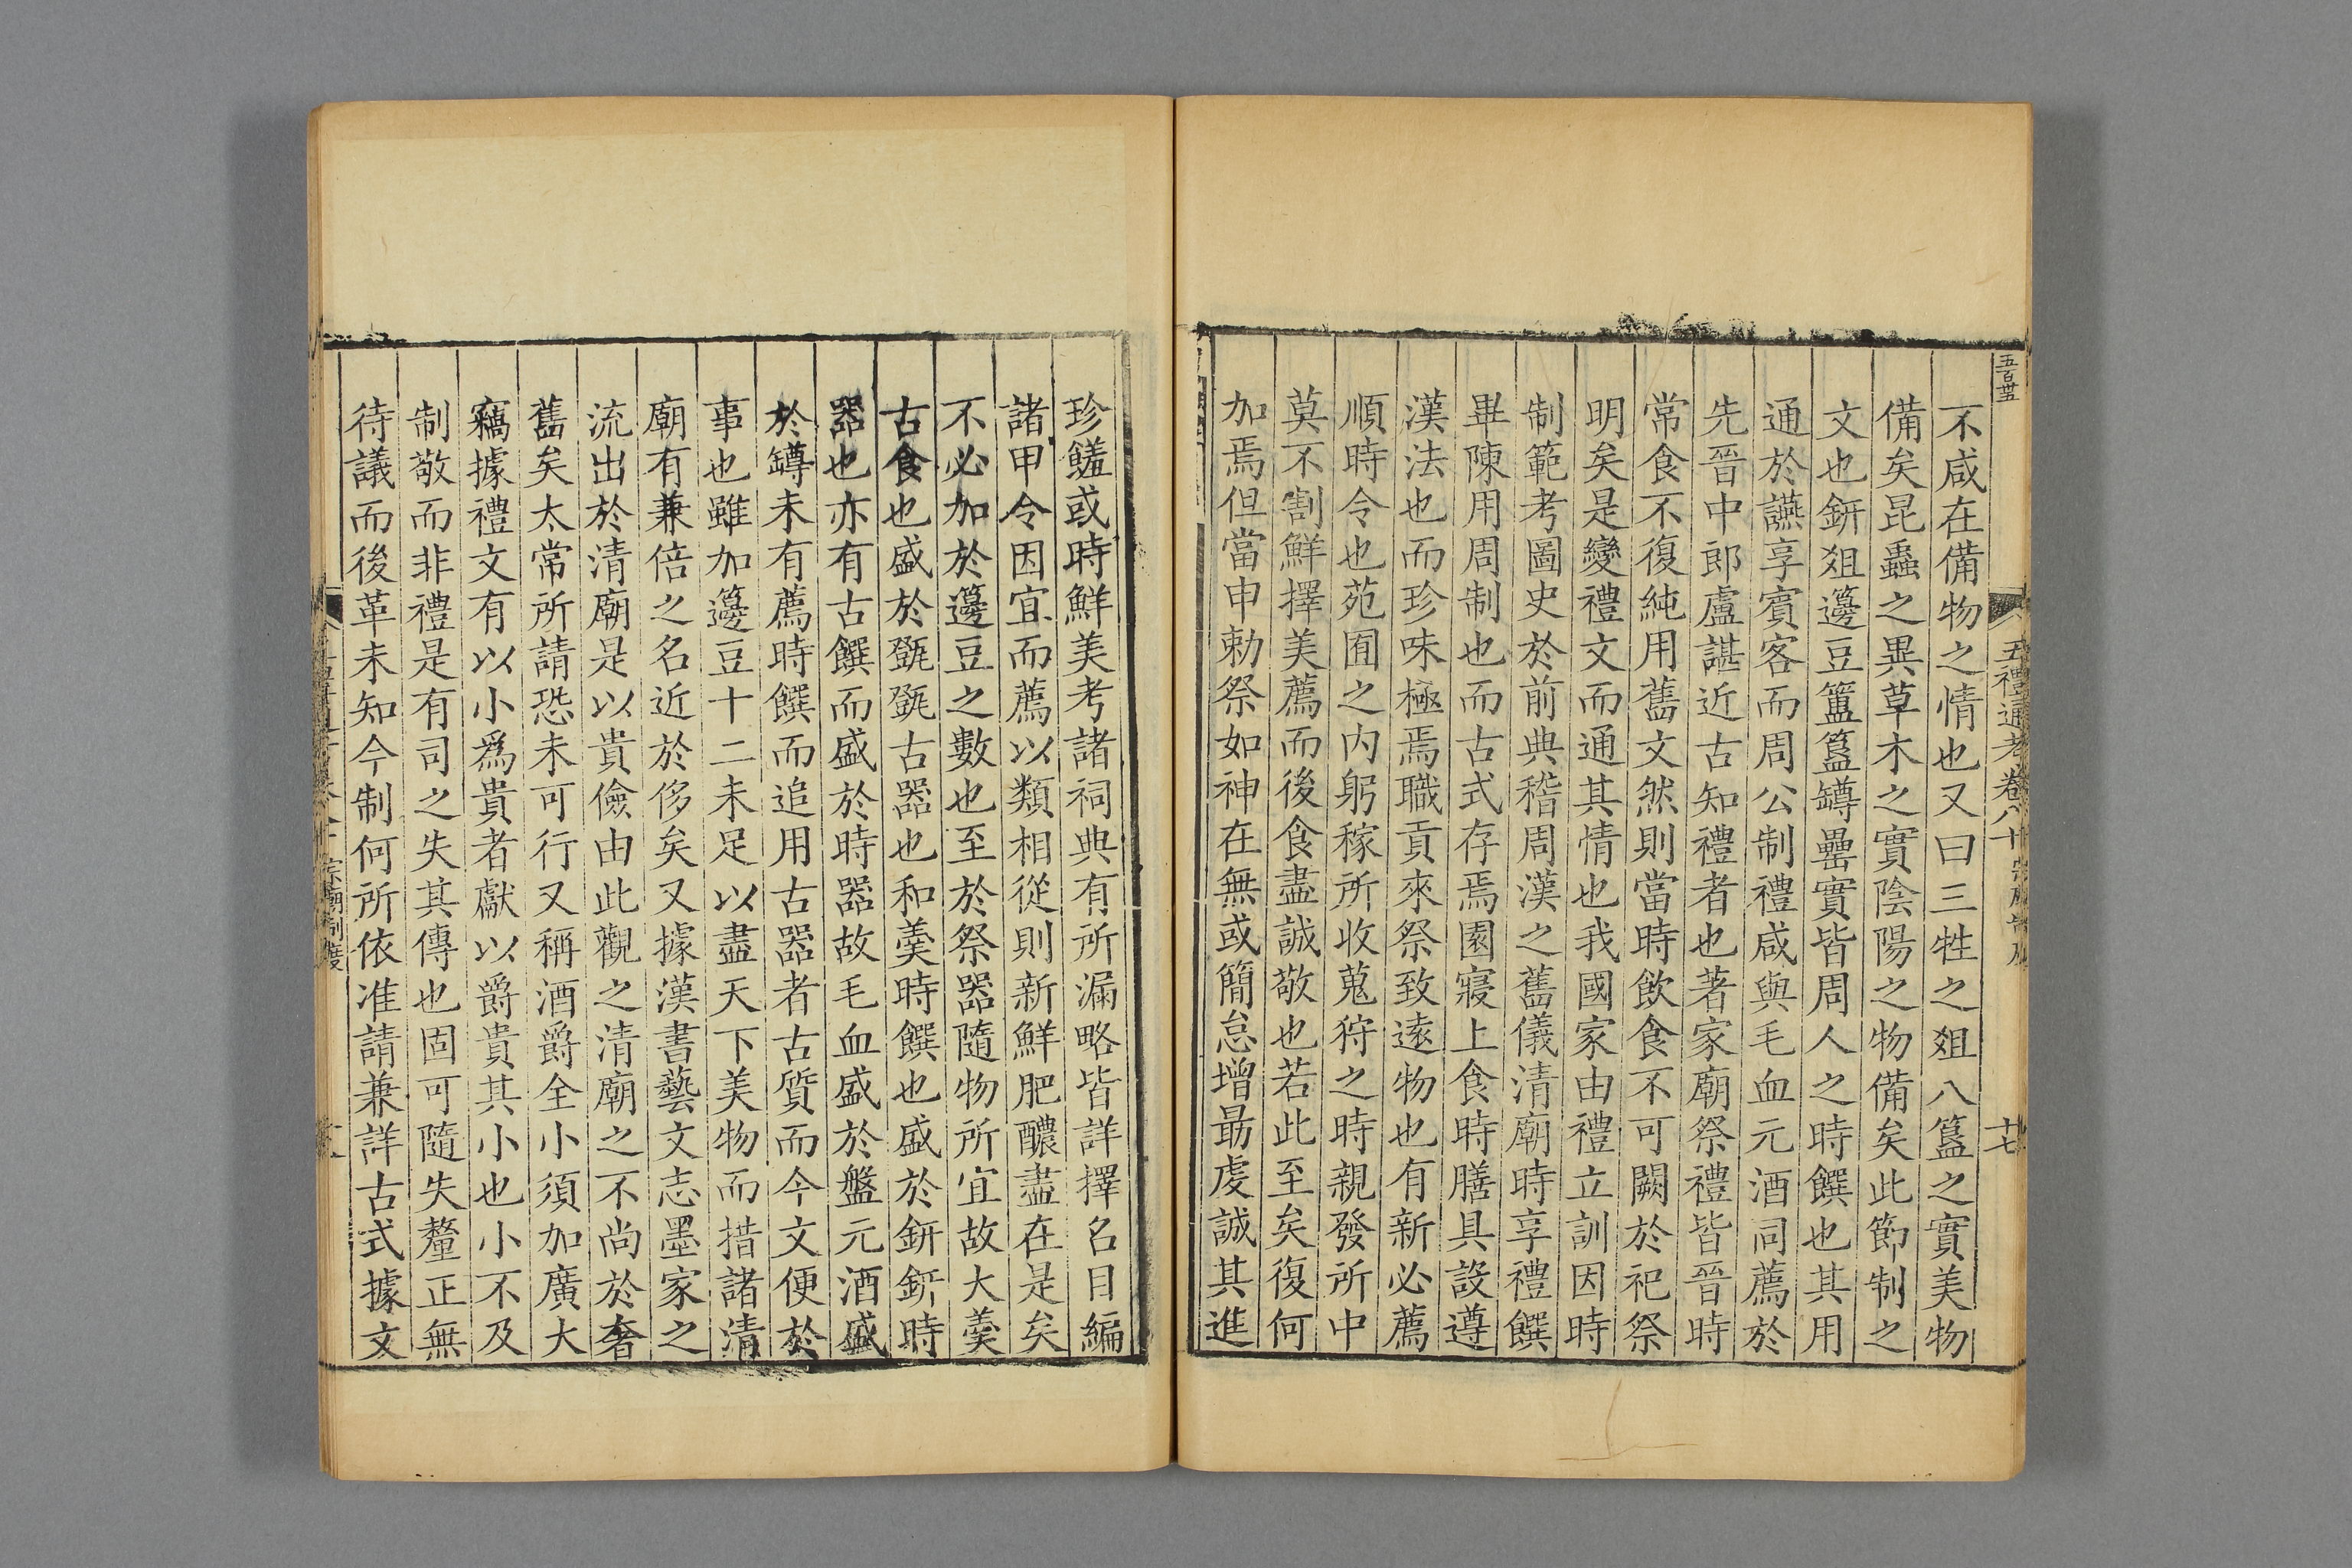 五禮通考卷八十
十七
不咸在備物之情也又曰三牲之爼八簋之實美物
備矣昆蟲之異草木之實陰陽之物備矣此節制之
文也鈃爼籩豆簠簋罇罍實皆周人之時饌也其用
通於讌享賓客而周公制禮咸與毛血元酒同薦於
先晉中郎盧諶近古知禮者也著家廟祭禮皆晉時
常食不復純用舊文然則當時飲食不可闕於祀祭
明矣是變禮文而通其情也我國家由禮立訓因時
制範考圖史於前典稽周漢之舊儀清廟時享禮饌
畢陳用周制也而古式存焉園寢上食時膳具設遵
漢法也而珍味極焉職貢來祭致遠物也有新必薦
順時令也苑囿之內躬稼所收蒐狩之時親發所中
莫不割鮮擇美薦而後食盡誠敬也若此至矣復何
加焉但當申勅祭如神在無或簡怠增勗虔誠其進
珍饈或時鮮美考諸祠典有所漏略皆詳擇名目編
諸甲令因宜而薦以類相從則新鮮肥醲盡在是矣
不必加於籩豆之數也至於祭器隨物所宜故大羹
古食也盛於㽅㽅古器也和羹時饌也盛於鈃鈃時
器也亦有古饌而盛於時器故毛血盛於盤元酒盛
於罇未有薦時饌而追用古器者古質而今文便於
事也雖加籩豆十二未足以盡天下美物而措諸清
廟有兼倍之名近於侈矣又據漢書藝文志墨家之
流出於清廟是以貴儉由此觀之清廟之不尚於奢
舊矣太常所請恐未可行又稱酒爵全小須加廣大
竊據禮文有以小爲貴者獻以爵貴其小也小不及
制敬而非禮是有司之失其傳也固可隨失釐正無
待議而後革未知今制何所依准請兼詳古式據文
宗廟制度